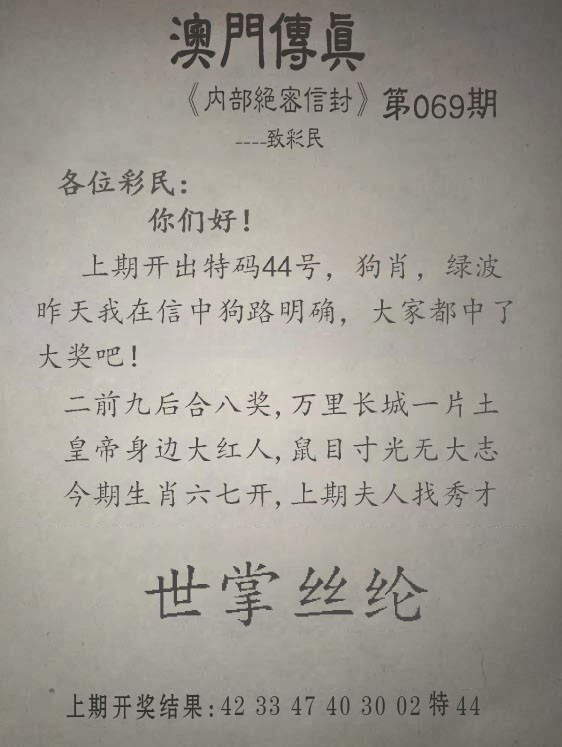 澳門傳眞
《内部絕密信封》第069期
----致彩民
各位彩民：
你们好！
上期开出特码44号，狗肖，绿波
昨天我在信中狗路明确，大家都中了
大奖吧！
二前九后合八奖,万里长城一片土
皇帝身边大红人,鼠目寸光无大志
今期生肖六七开,上期夫人找秀才
世掌丝纶
上期开奖结果:42 33 47 40 30 02 特 44